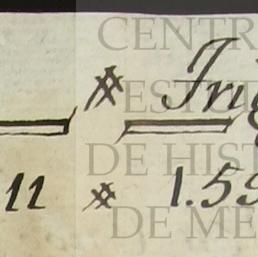 CENTR
ESTU
DE HIST
11 # 1.59
DE ME